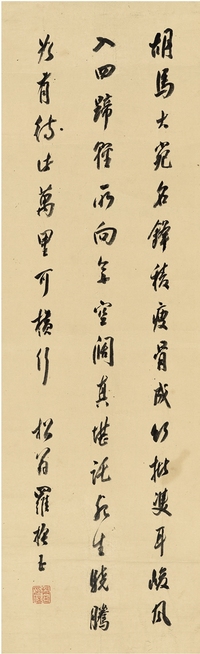 胡馬大宛名鋒稜瘦骨成竹批雙耳峻風
入四蹄輕所向無空闊真堪託死生驍騰
有萬里可橫行 松翁羅振玉